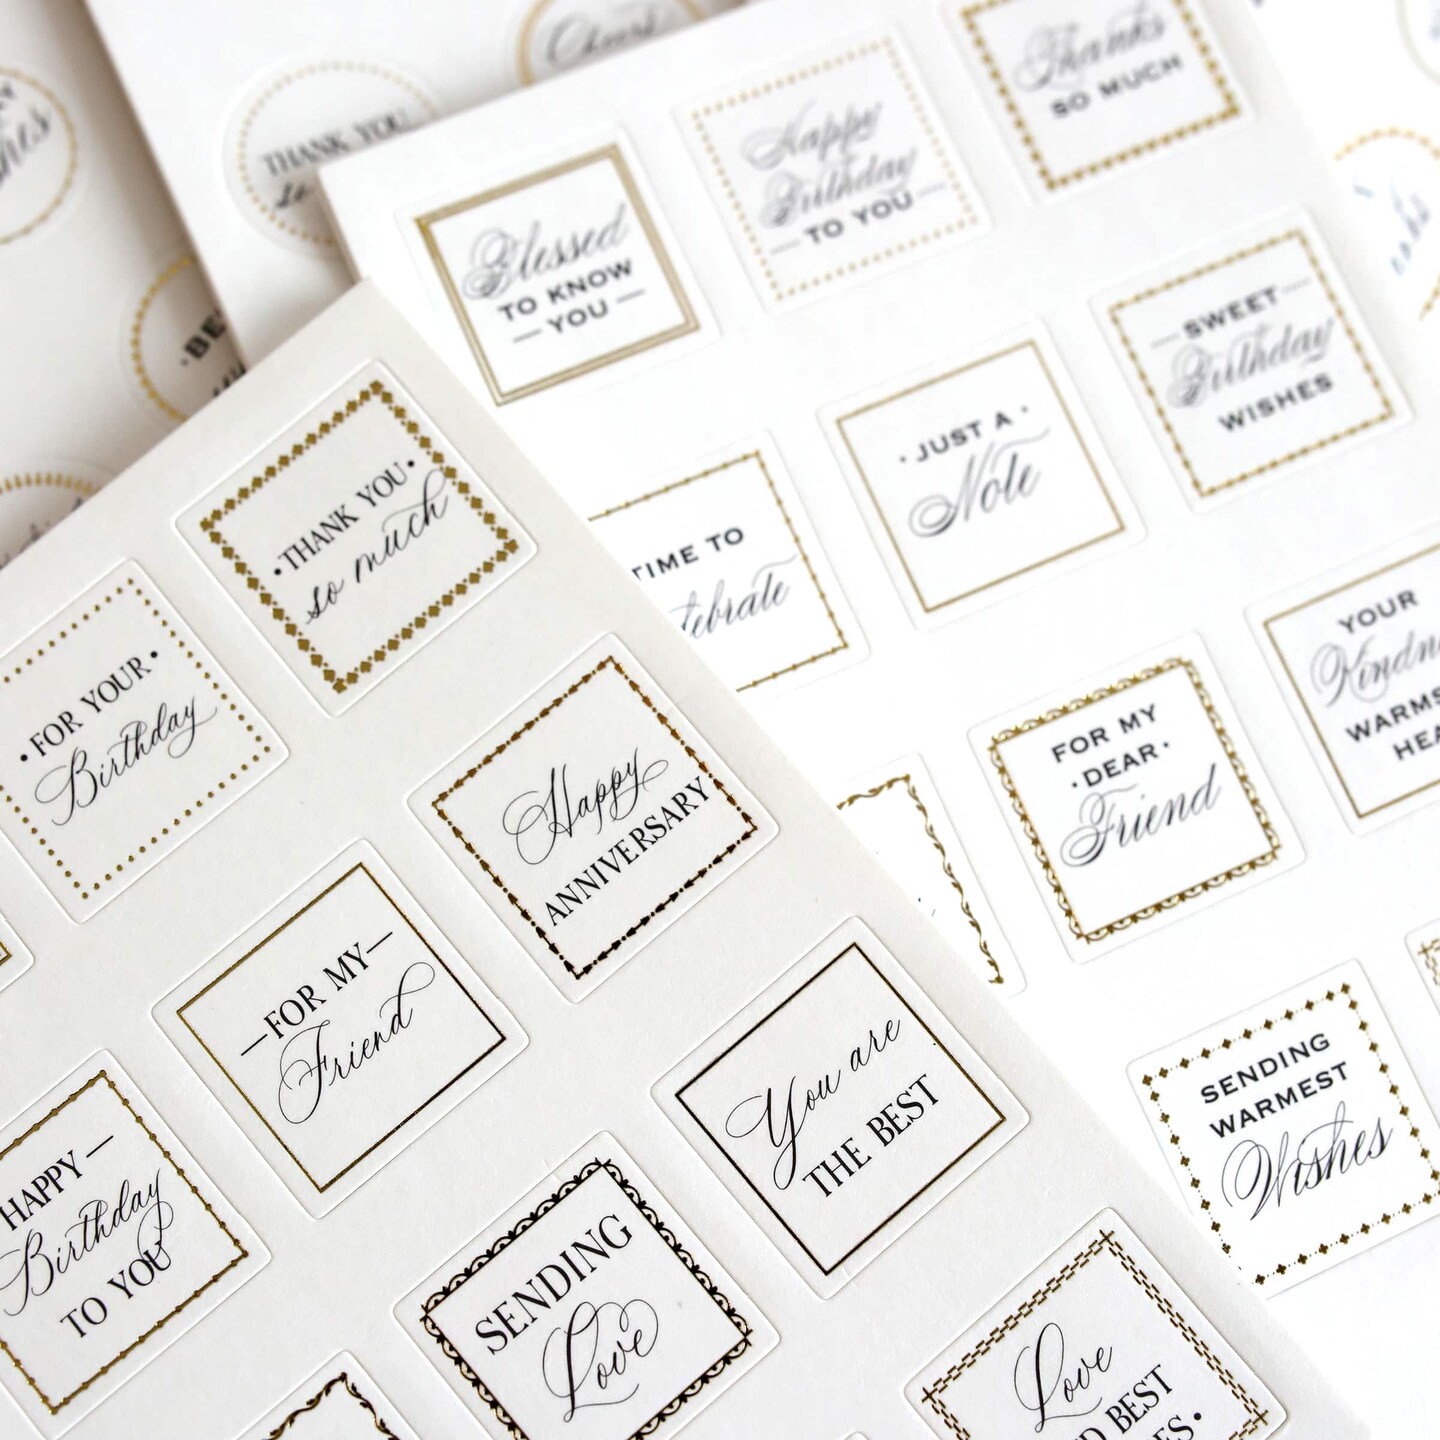 Cheers
THANK YOU
so
BE
Thanks
SO MUCH
Happy
Birthday
TO YOU
Blessed
TO KNOW
YOU
SWEET
Birthday
WISHES
JUST A
Note
TIME TO
YOUR
FOR MY
DEAR
Friend
SENDING
WARMEST
Wishes
THANK YOU
so much
FOR YOUR
Birthday
Happy
ANNIVERSARY
FOR MY
Friend
You are
THE BEST
HAPPY
Birthday
TO YOU
SENDING
Love
Love
BEST